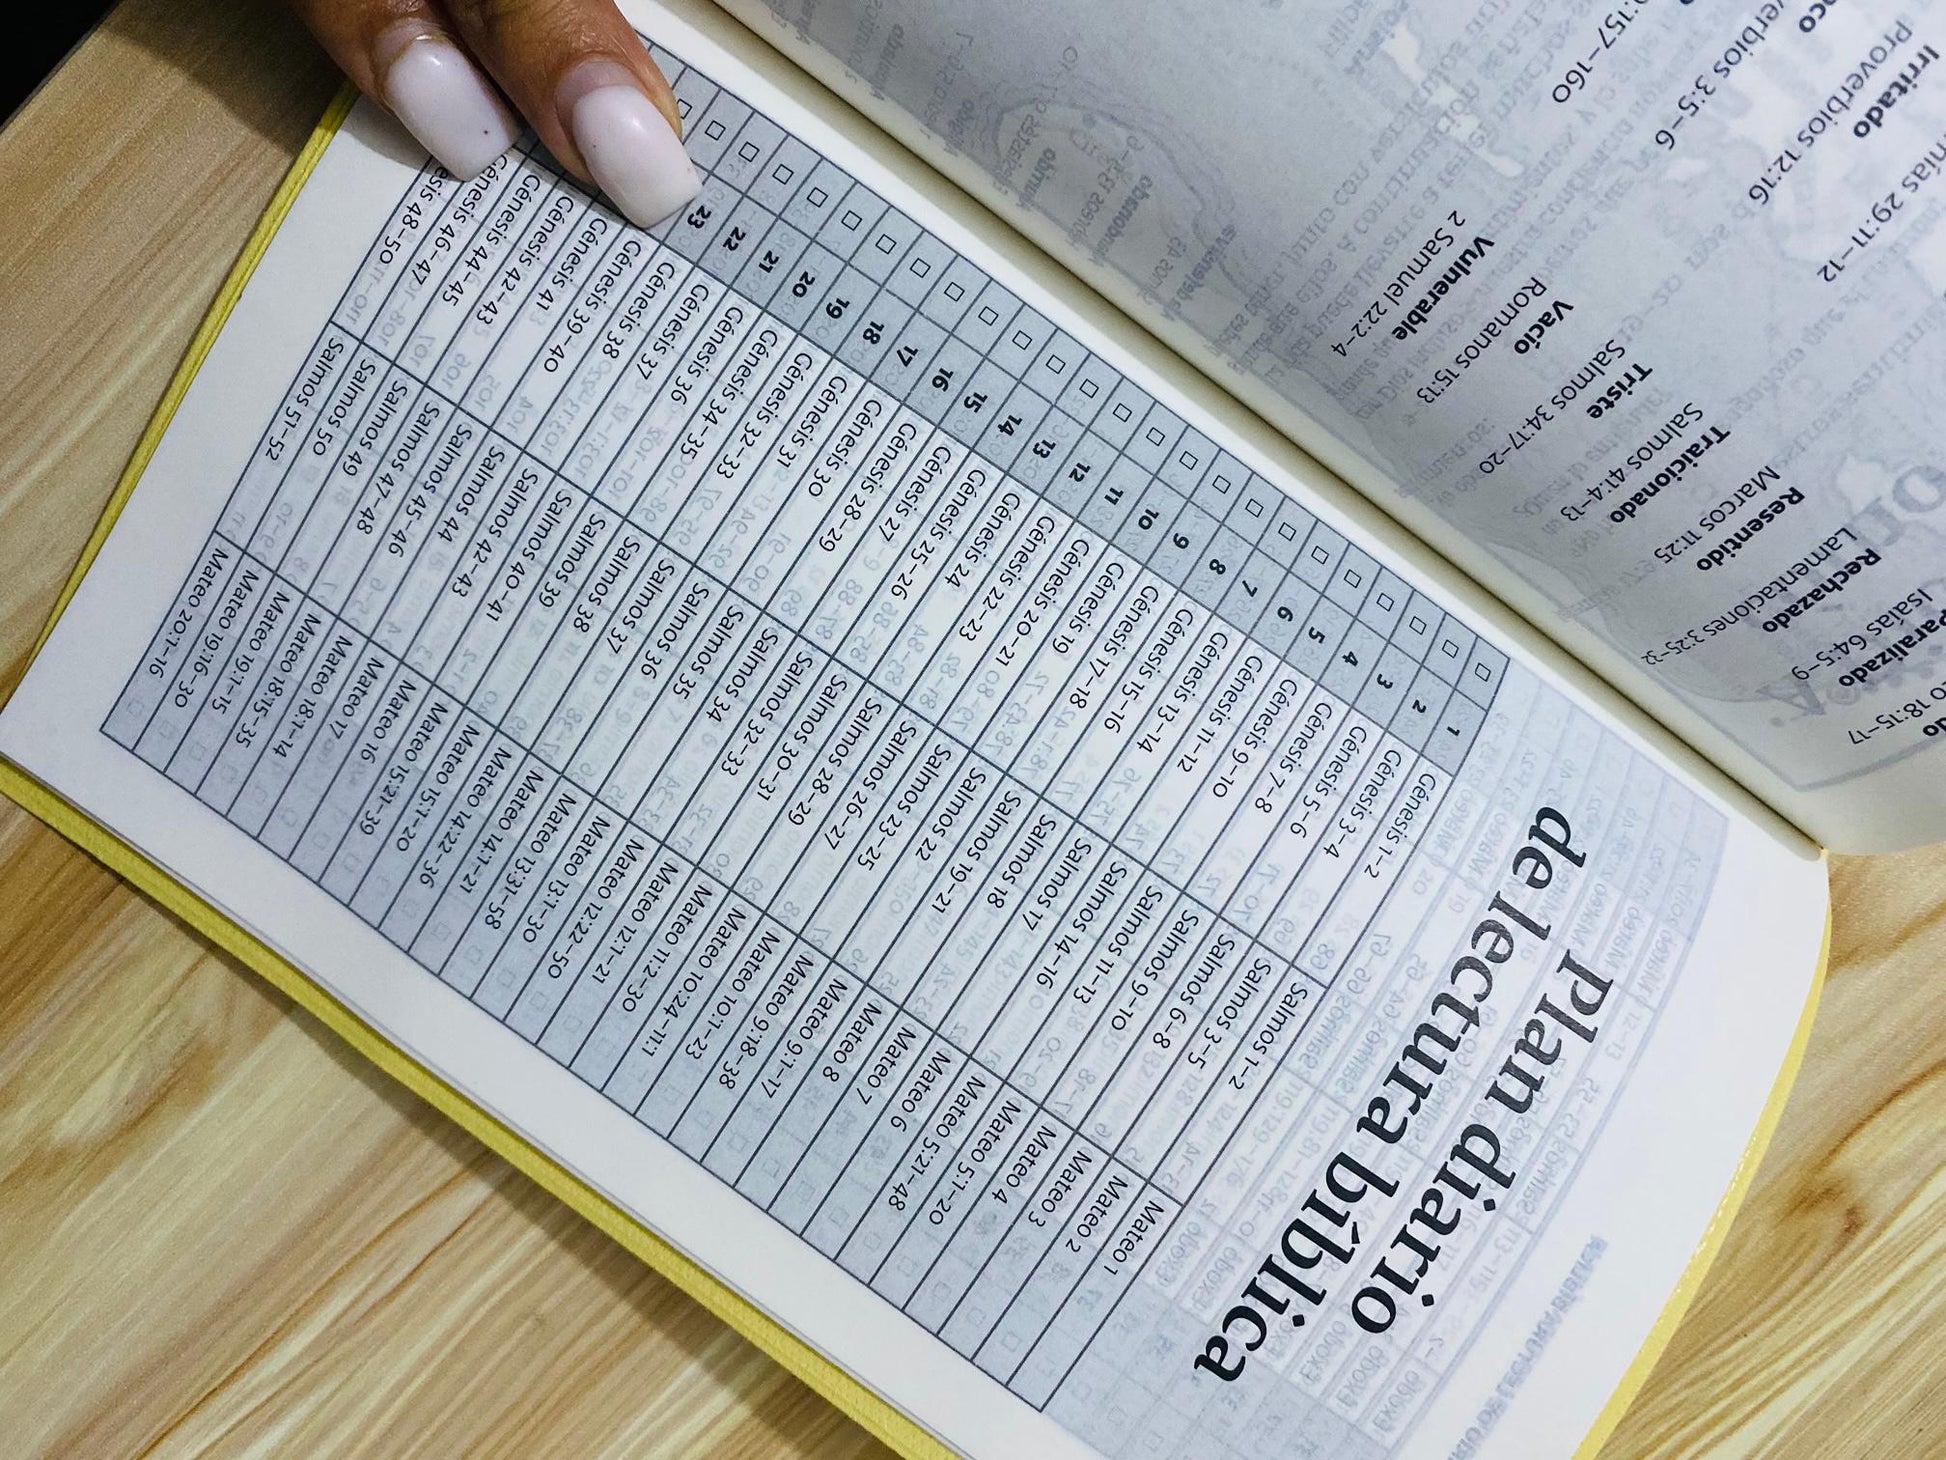 Plan diario
de lectura bíblica
1 Génesis 1–2 Salmos 1–2 Mateo 1
2 Génesis 3–4 Salmos 3–5 Mateo 2
3 Génesis 5–6 Salmos 6–8 Mateo 3
4 Génesis 7–8 Salmos 9–10 Mateo 4
5 Génesis 9–10 Salmos 11–13 Mateo 5:1–20
6 Génesis 11–12 Salmos 14–16 Mateo 5:21–48
7 Génesis 13–14 Salmos 17 Mateo 6
8 Génesis 15–16 Salmos 18 Mateo 7
9 Génesis 17–18 Salmos 19–21 Mateo 8
10 Génesis 19 Salmos 22 Mateo 9:1–17
11 Génesis 20–21 Salmos 23–25 Mateo 9:18–38
12 Génesis 22–23 Salmos 26–27 Mateo 10:1–23
13 Génesis 24 Salmos 28–29 Mateo 10:24–11:1
14 Génesis 25–26 Salmos 30–31 Mateo 11:2–30
15 Génesis 27 Salmos 32–33 Mateo 12:1–21
16 Génesis 28–29 Salmos 34 Mateo 12:22–50
17 Génesis 30 Salmos 35 Mateo 13:1–30
18 Génesis 31 Salmos 36 Mateo 13:31–58
19 Génesis 32–33 Salmos 37 Mateo 14:1–21
20 Génesis 34–35 Salmos 38 Mateo 14:22–36
21 Génesis 36 Salmos 39 Mateo 15:1–20
22 Génesis 37 Salmos 40–41 Mateo 15:21–39
23 Génesis 38 Salmos 42–43 Mateo 16
Génesis 39–40 Salmos 44 Mateo 17
Génesis 41 Salmos 45–46 Mateo 18:1–14
Génesis 42–43 Salmos 47–48 Mateo 18:15–35
Génesis 44–45 Salmos 49 Mateo 19:1–15
Génesis 46–47 Salmos 50 Mateo 19:16–30
48–50 Salmos 51–52 Mateo 20:1–16
18:15–17
Paralizado
Isaías 64:5–9
Rechazado
Lamentaciones 3:25–32
Resentido
Marcos 11:25
Traicionado
Salmos 41:4–13
Triste
Salmos 34:17–20
Vacío
Romanos 15:13
Vulnerable
2 Samuel 22:2–4
29:11–12
Irritado
Proverbios 12:16
3:5–6
:157–160